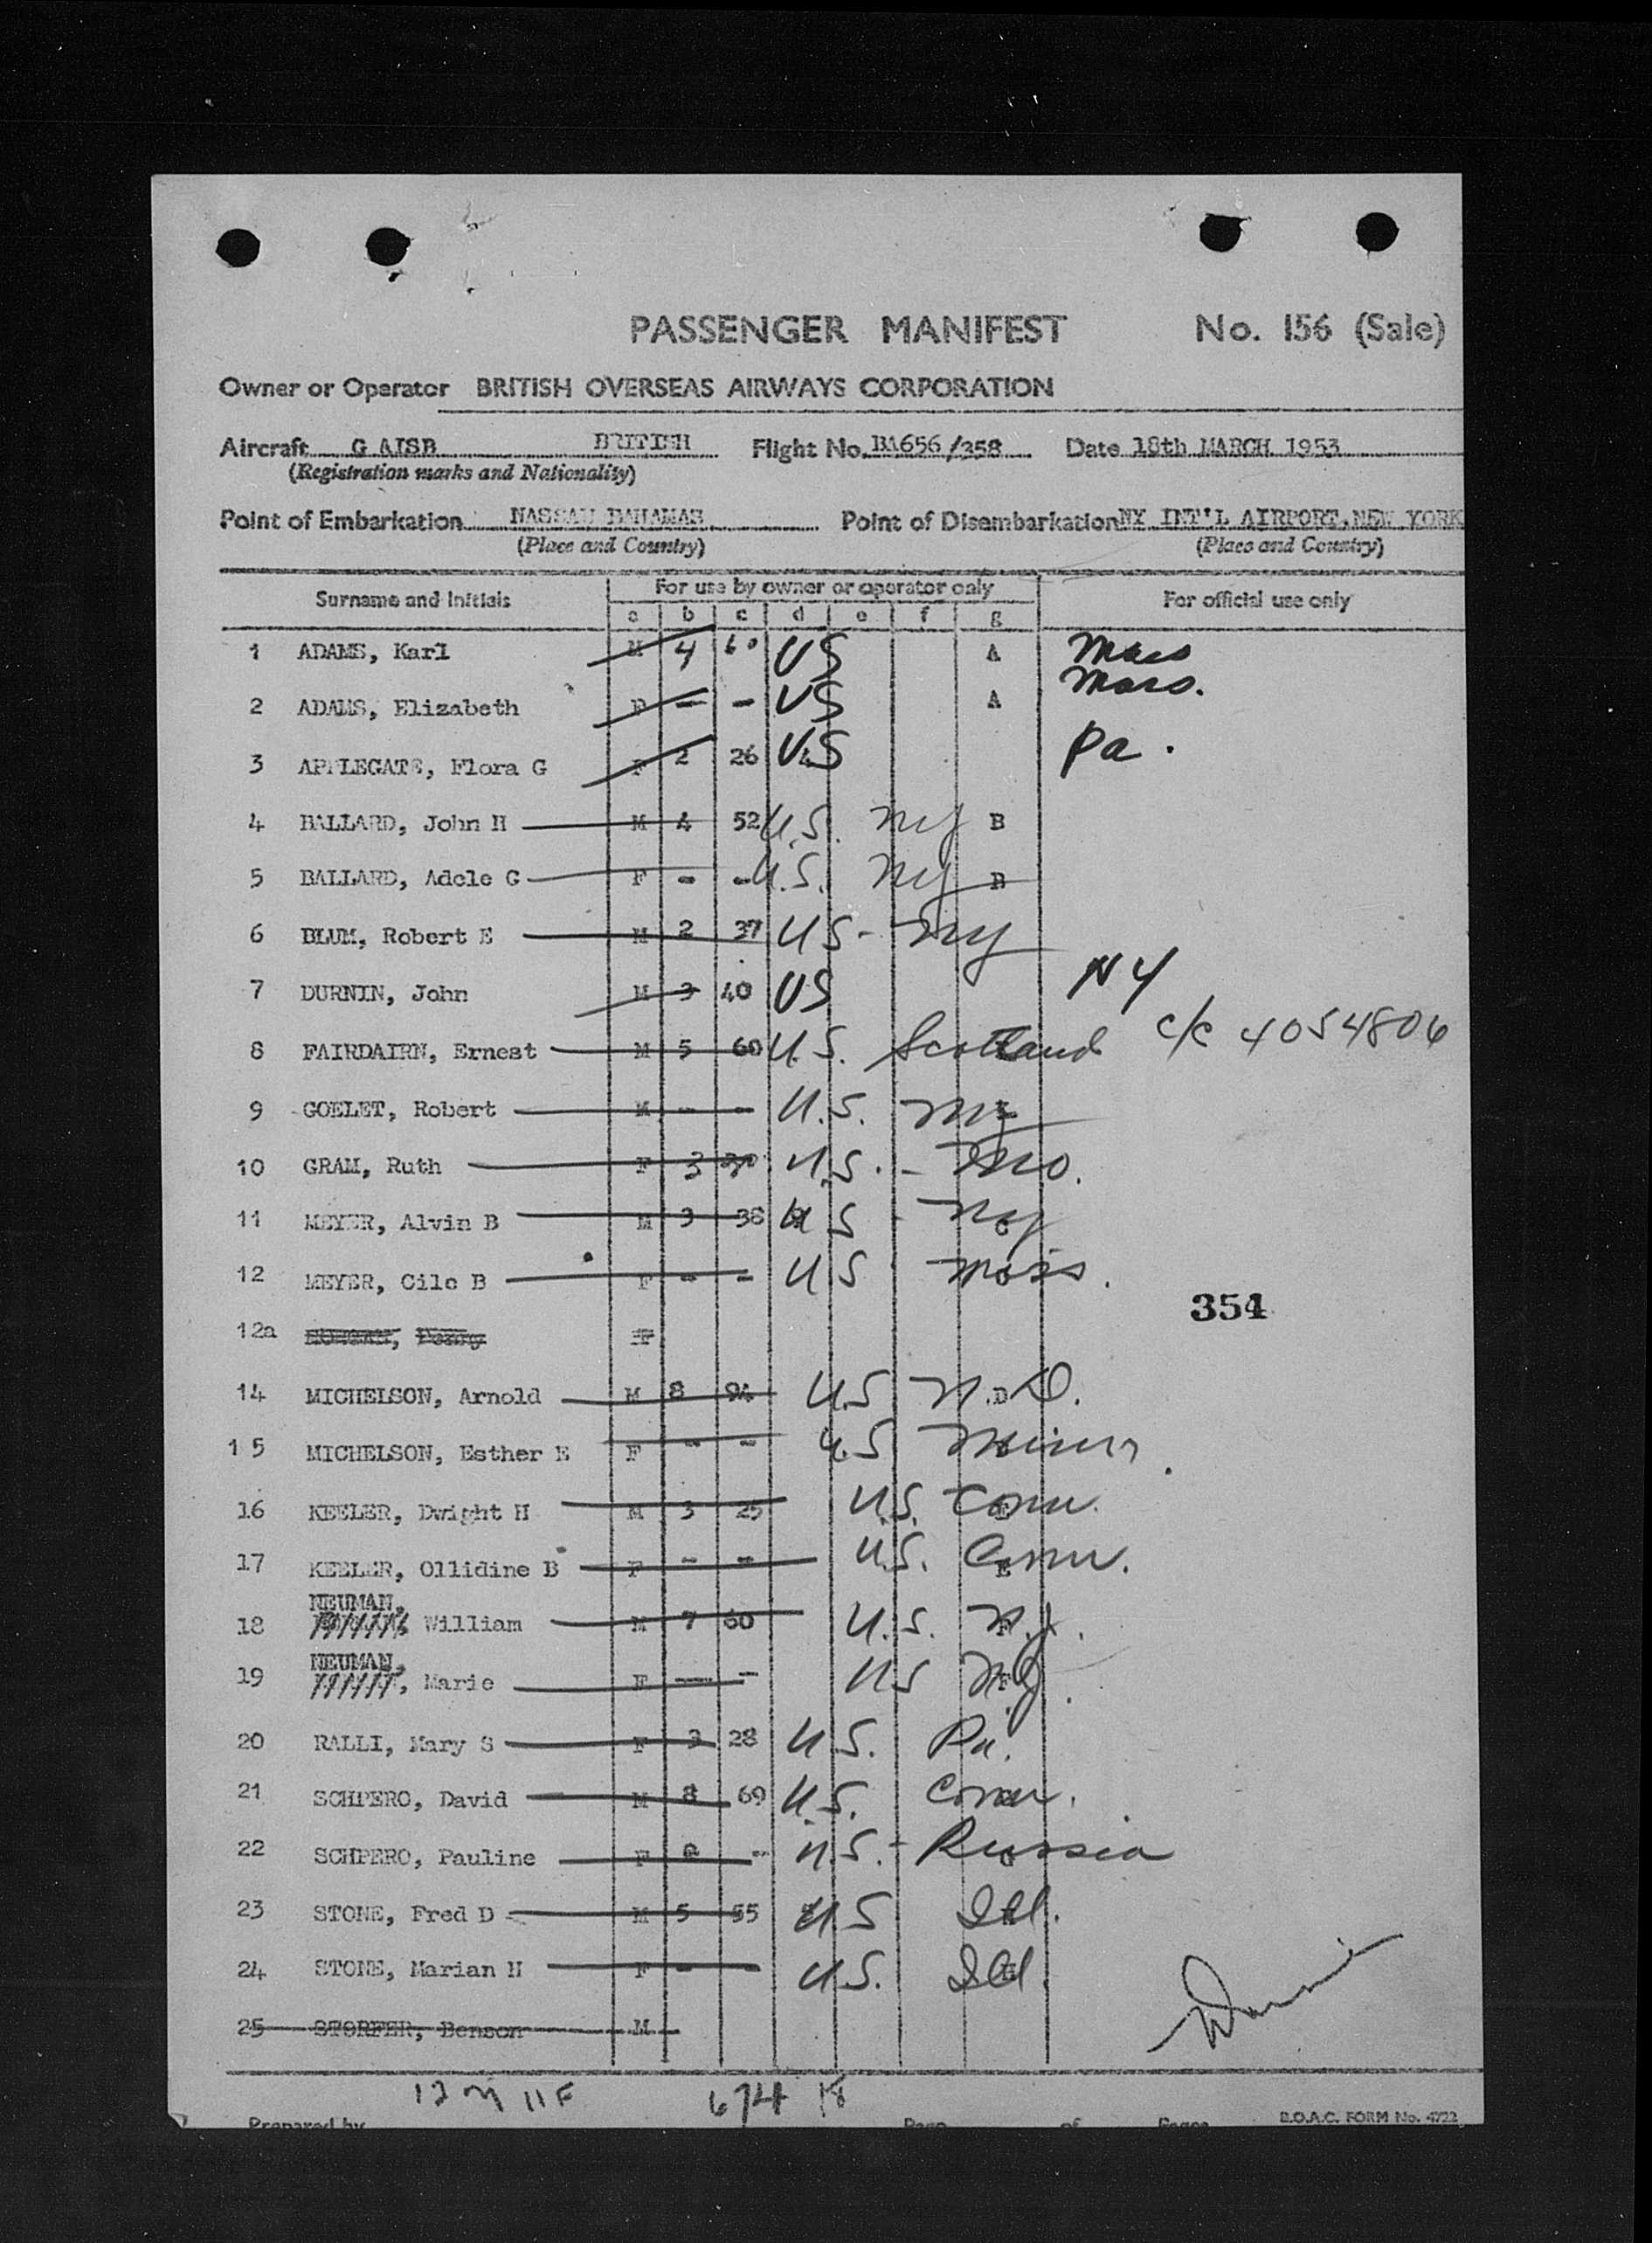 PASSENGER MANIFEST No. 156 (Sale)
Owner or Operator BRITISH OVERSEAS AIRWAYS CORPORATION
Aircraft G AISB BRITISH Flight No. BA656/358 Date 18th MARCH 1953
(Registration marks and Nationality)
Point of Embarkation NASSAU BAHAMAS Point of Disembarkation NY INT'L AIRPORT, NEW YORK
(Place and Country) (Place and Country)
Surname and Initials For use by owner or operator only For official use only
a b c d e f g
1 ADAMS, Karl M 4 60 US A Mass
2 ADAMS, Elizabeth F - - US A Mass.
3 APPLEGATE, Flora G F 2 26 US Pa.
4 BALLARD, John H M 4 52 U.S. NY B
5 BALLARD, Adele G F - - U.S. NY B
6 BLUM, Robert E M 2 37 US - NY
7 DURNIN, John M 3 40 US NY
8 FAIRDAIRN, Ernest M 5 60 U.S. Scotland c/c 4054806
9 GOELET, Robert M - - U.S. NY
10 GRAM, Ruth F 3 30 U.S. - Mo.
11 MEYER, Alvin B M 3 38 US - NY C
12 MEYER, Cile B F - - US Mass.
354
12a F
14 MICHELSON, Arnold M 8 94 U.S N.D. D
15 MICHELSON, Esther E F - - U.S Minn
16 KEELER, Dwight H M 3 25 U.S. Conn.
17 KEELER, Ollidine B F - - U.S. Conn. E
NEUMAN,
18 William M 7 60 U.S. N.J. F
NEUMAN,
19 Marie F - - US NJ. F
20 RALLI, Mary S F 3 28 U.S. Pa.
21 SCHPERO, David M 8 69 U.S. Conn.
22 SCHPERO, Pauline F - - U.S. - Russia
23 STONE, Fred D M 5 55 US Ill.
24 STONE, Marian H F - - U.S. Ill.
25 STORFER, Benson M
12 M 11 F 674 K
Prepared by Page of Pages B.O.A.C. FORM No. 4722